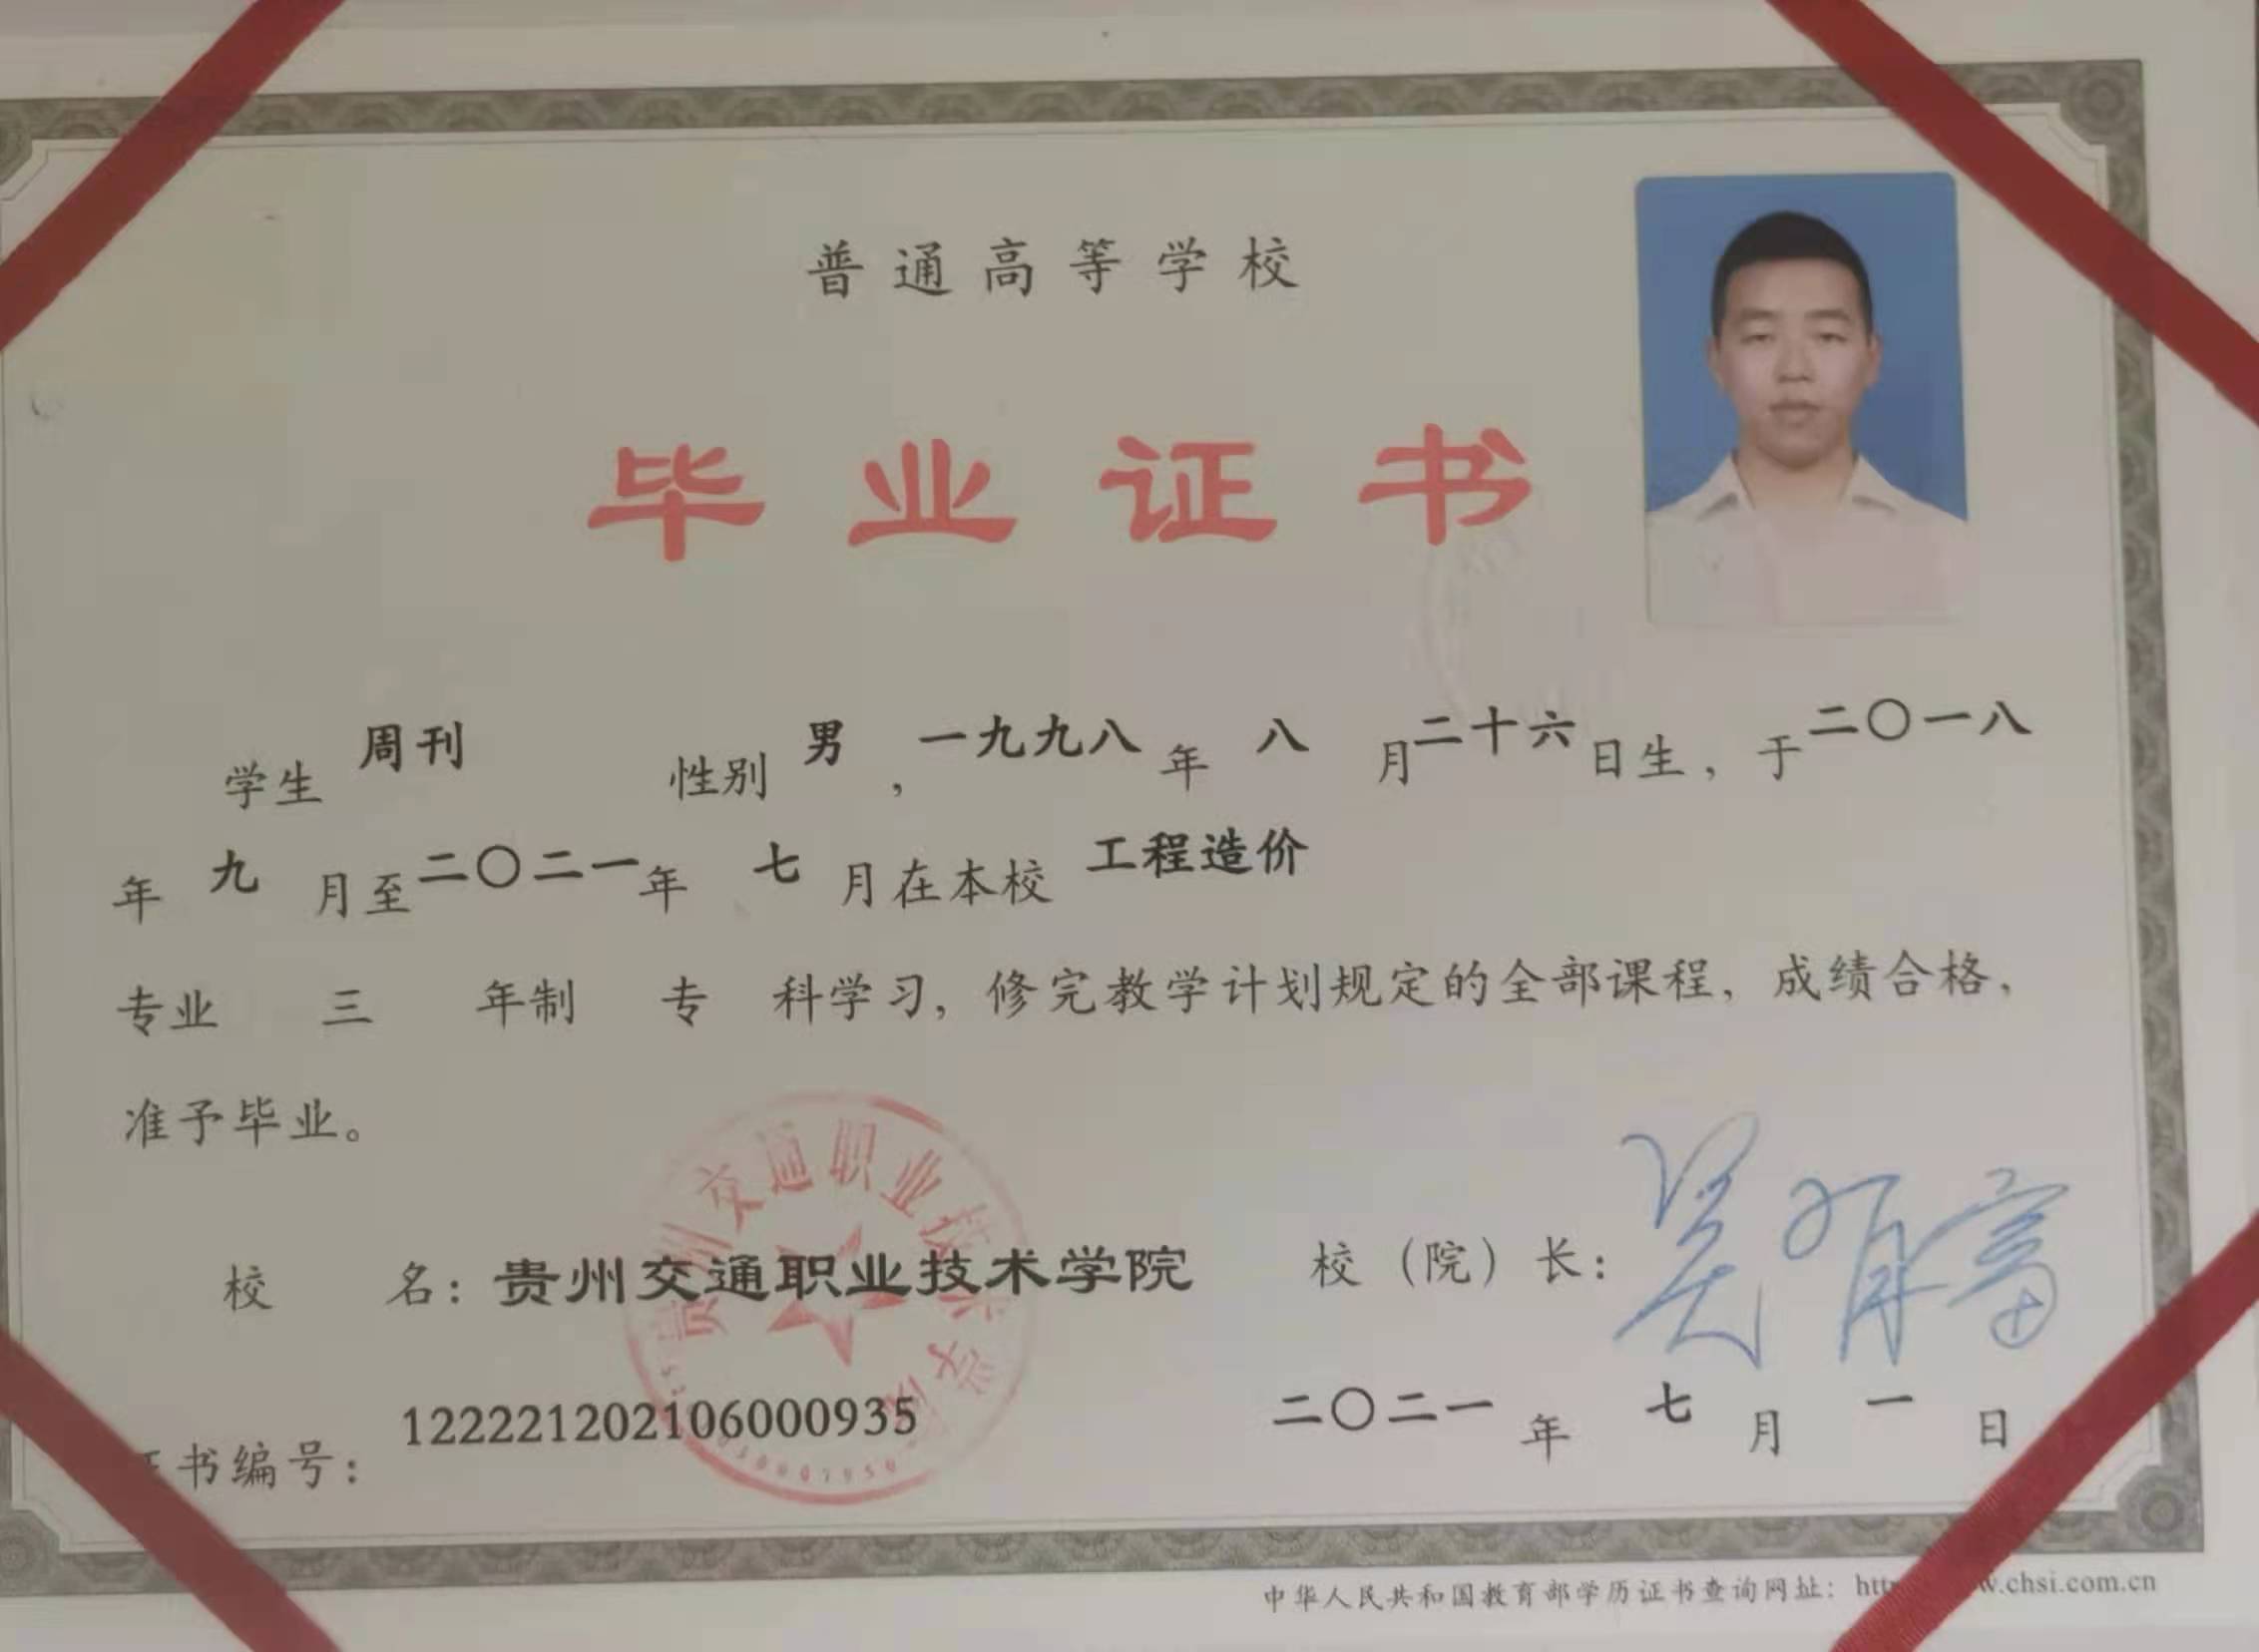 普通高等学校
毕业证书
学生 周刊 性别 男 ,一九九八 年 八 月二十六日生,于二〇一八
年 九 月至二〇二一年 七 月在本校 工程造价
专业 三 年制 专 科学习,修完教学计划规定的全部课程,成绩合格,
准予毕业。
校 名:贵州交通职业技术学院 校(院)长:吴有富
贵州交通职业技术学院
书编号: 122221202106000935 二〇二一 年 七 月 一 日
中华人民共和国教育部学历证书查询网址: htt w.chsi.com.cn